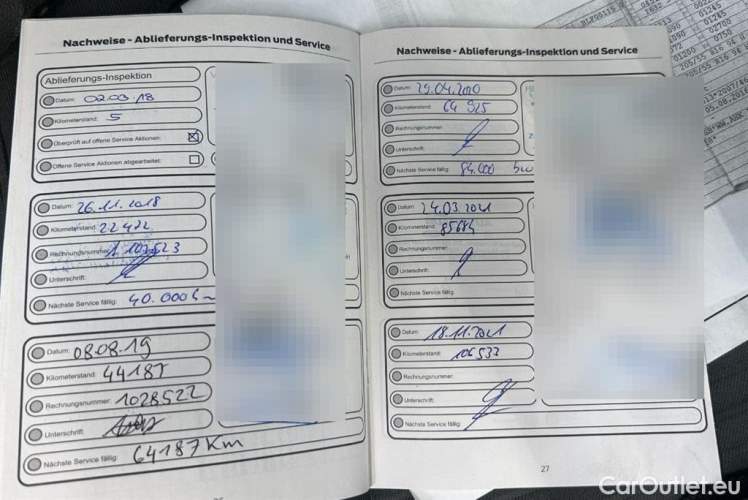 Nachweise - Ablieferungs-Inspektion und Service
Ablieferungs-Inspektion
Datum: 02.03.18
Kilometerstand: 5
Überprüft auf offene Service Aktionen:
Offene Service Aktionen abgearbeitet:
Datum: 26.11.2018
Kilometerstand: 22422
Rechnungsnummer:
Unterschrift:
Nächste Service fällig: 40.000
Datum: 08.08.19
Kilometerstand: 44187
Rechnungsnummer: 1028522
Unterschrift:
Nächste Service fällig: 64187 Km
Nachweise - Ablieferungs-Inspektion und Service
Datum: 29.04.2020
Kilometerstand: 64 925
Rechnungsnummer:
Unterschrift:
Nächste Service fällig: 84.000
Datum: 24.03.2021
Kilometerstand: 85684
Rechnungsnummer:
Unterschrift:
Nächste Service fällig:
Datum: 18.11.2021
Kilometerstand: 106533
Rechnungsnummer:
Unterschrift:
Nächste Service fällig:
27
CarOutlet.eu